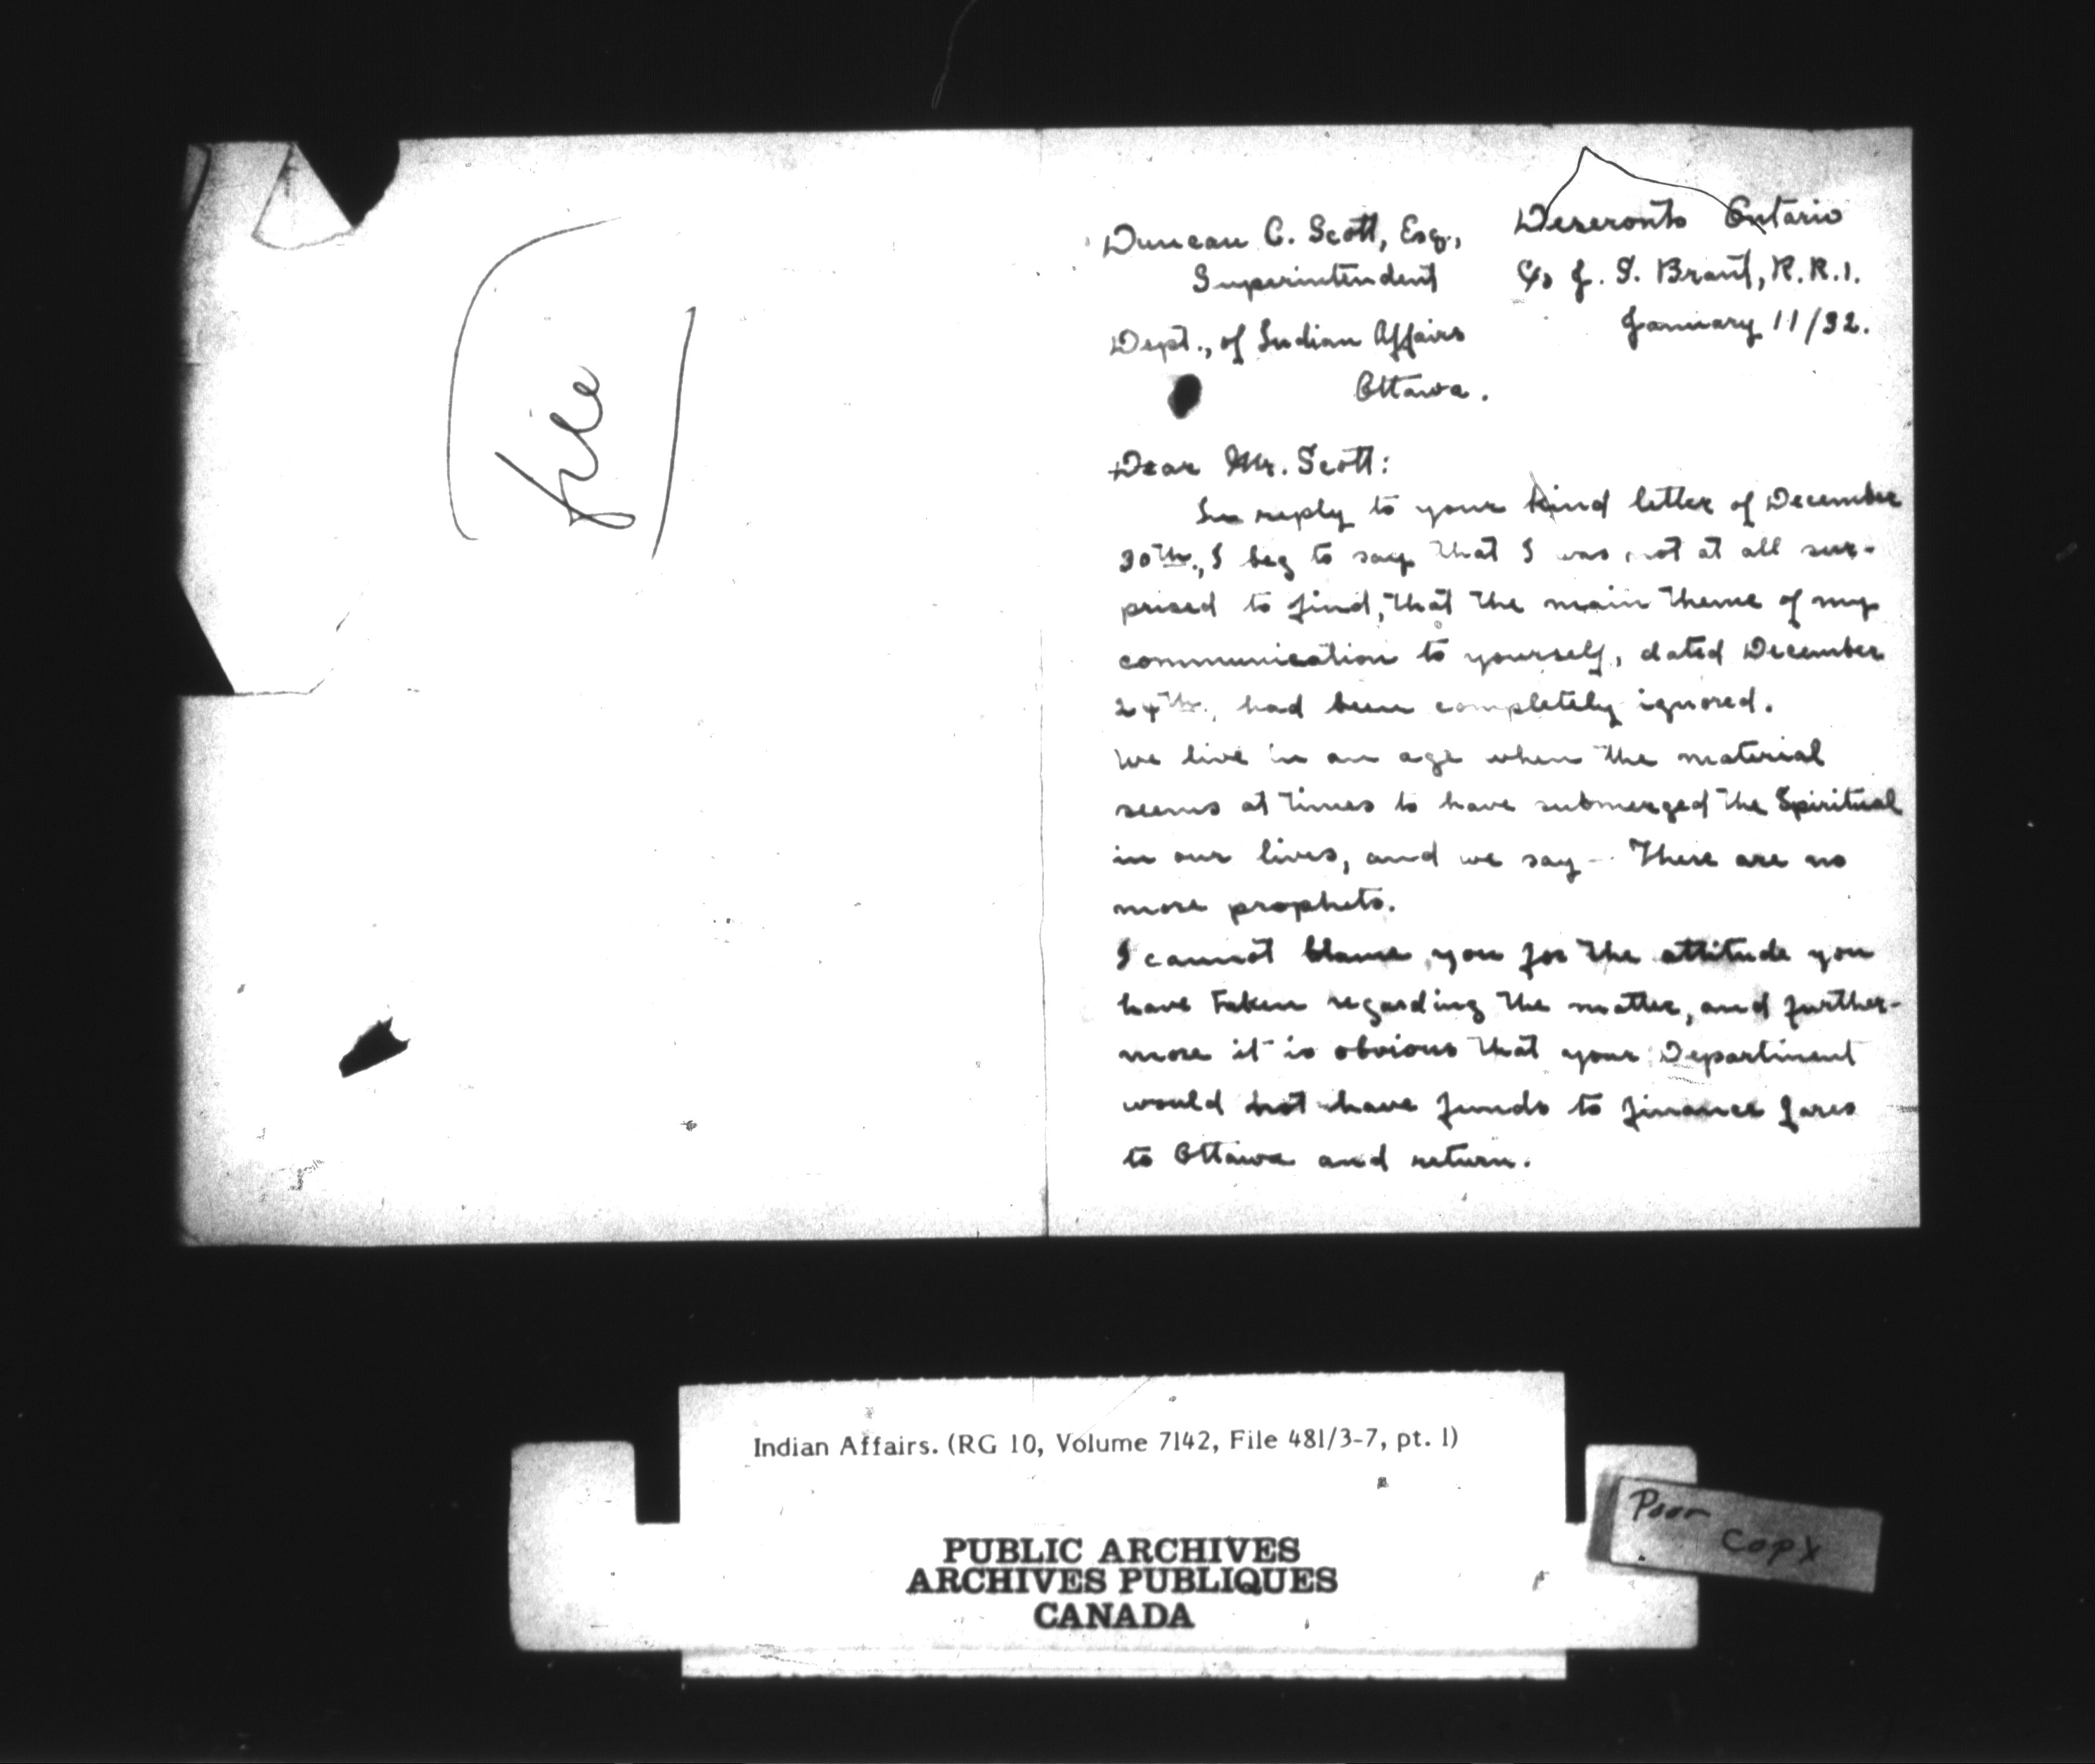 file
Duncan C. Scott, Esq.,
Superintendent
Dept., of Indian Affairs
Ottawa.
Deseronto Ontario
c/o J. S. Brant, R.R.1.
January 11/32.
Dear Mr. Scott:
In reply to your kind letter of December
30th., I beg to say that I was not at all sur-
prised to find, that the main theme of my
communication to yourself, dated December
24th., had been completely ignored.
We live in an age when the material
seems at times to have submerged the Spiritual
in our lives, and we say - There are no
more prophets.
I cannot blame you for the attitude you
have taken regarding the matter, and further-
more it is obvious that your Department
would not have funds to finance fares
to Ottawa and return.
Indian Affairs. (RG 10, Volume 7142, File 481/3-7, pt. 1)
PUBLIC ARCHIVES
ARCHIVES PUBLIQUES
CANADA
Poor
Copy